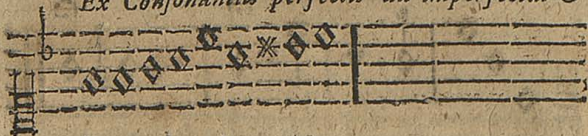 Ex Consonantiis perfectis ad imperfectas